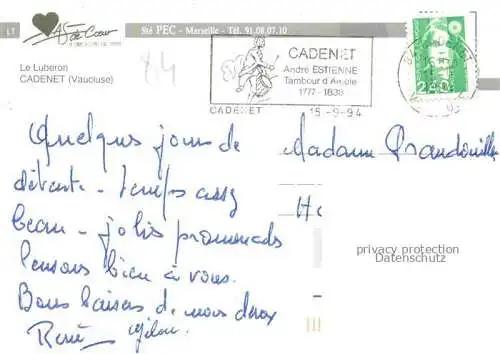 LT
As de Cœur
Sté PEC - Marseille - Tél. 91.08.07.10
Le Luberon
CADENET (Vaucluse)
84
CADENET
André ESTIENNE
Tambour d'Arcole
1777-1838
CADENET 15-9-94
2,40
Quelques jours de
détente - temps assez
beau - jolis promenades
Pensons bien à vous.
Bons baisers de nous deux
René
Madame
privacy protection
Datenschutz